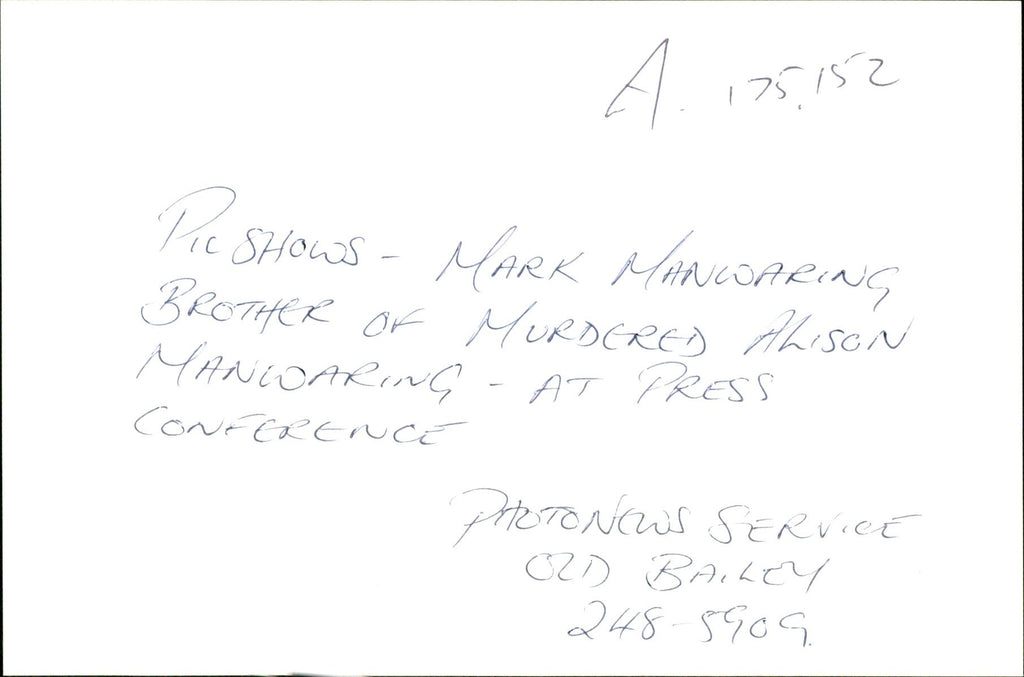 A. 175,152
PIC SHOWS - MARK MANWARING
BROTHER OF MURDERED ALISON
MANWARING - AT PRESS
CONFERENCE
PHOTONEWS SERVICE
OLD BAILEY
248-5909.